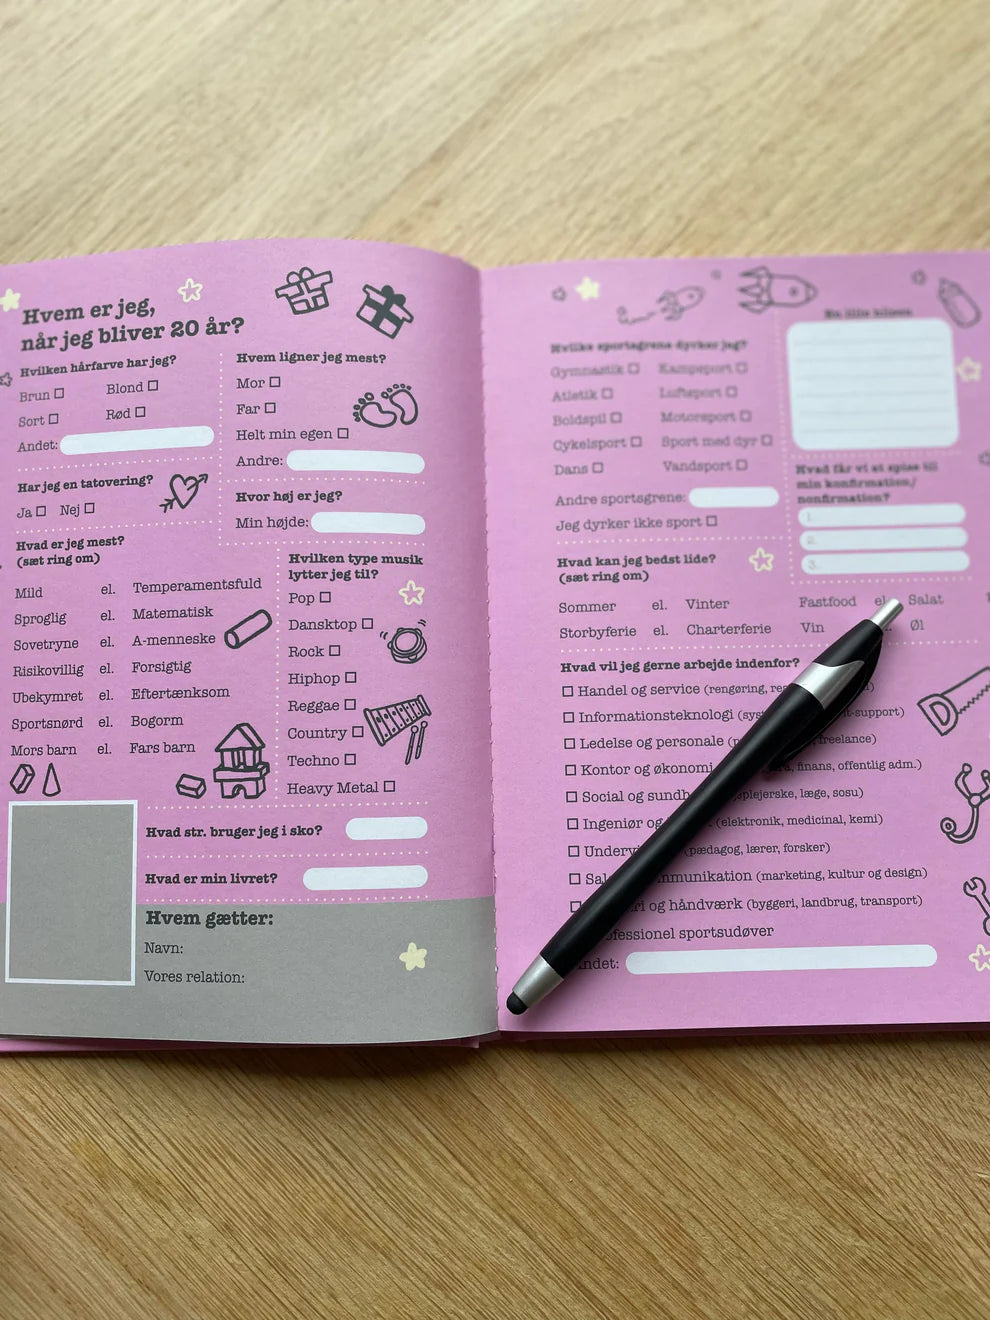 Hvem er jeg,
når jeg bliver 20 år?
Hvilken hårfarve har jeg?
Brun Blond
Sort Rød
Andet:
Har jeg en tatovering?
Ja Nej
Hvem ligner jeg mest?
Mor
Far
Helt min egen
Andre:
Hvor høj er jeg?
Min højde:
Hvad er jeg mest?
(sæt ring om)
Mild el. Temperamentsfuld
Sproglig el. Matematisk
Sovetryne el. A-menneske
Risikovillig el. Forsigtig
Ubekymret el. Eftertænksom
Sportsnørd el. Bogorm
Mors barn el. Fars barn
Hvilken type musik
lytter jeg til?
Pop
Dansktop
Rock
Hiphop
Reggae
Country
Techno
Heavy Metal
Hvad str. bruger jeg i sko?
Hvad er min livret?
Hvem gætter:
Navn:
Vores relation:
Hvilke sportsgrene dyrker jeg?
Gymnastik Kampsport
Atletik Luftsport
Boldspil Motorsport
Cykelsport Sport med dyr
Dans Vandsport
Andre sportsgrene:
Jeg dyrker ikke sport
En lille hilsen
Hvad får vi at spise til
min konfirmation/
nonfirmation?
1.
2.
3.
Hvad kan jeg bedst lide?
(sæt ring om)
Sommer el. Vinter
Storbyferie el. Charterferie
Fastfood el. Salat
Vin Øl
Hvad vil jeg gerne arbejde indenfor?
Handel og service (rengøring,
Informationsteknologi it-support)
Ledelse og personale freelance)
Kontor og økonomi finans, offentlig adm.)
Social og læge, sosu)
Ingeniør og (elektronik, medicinal, kemi)
(pædagog, lærer, forsker)
(marketing, kultur og design)
og håndværk (byggeri, landbrug, transport)
sportsudøver